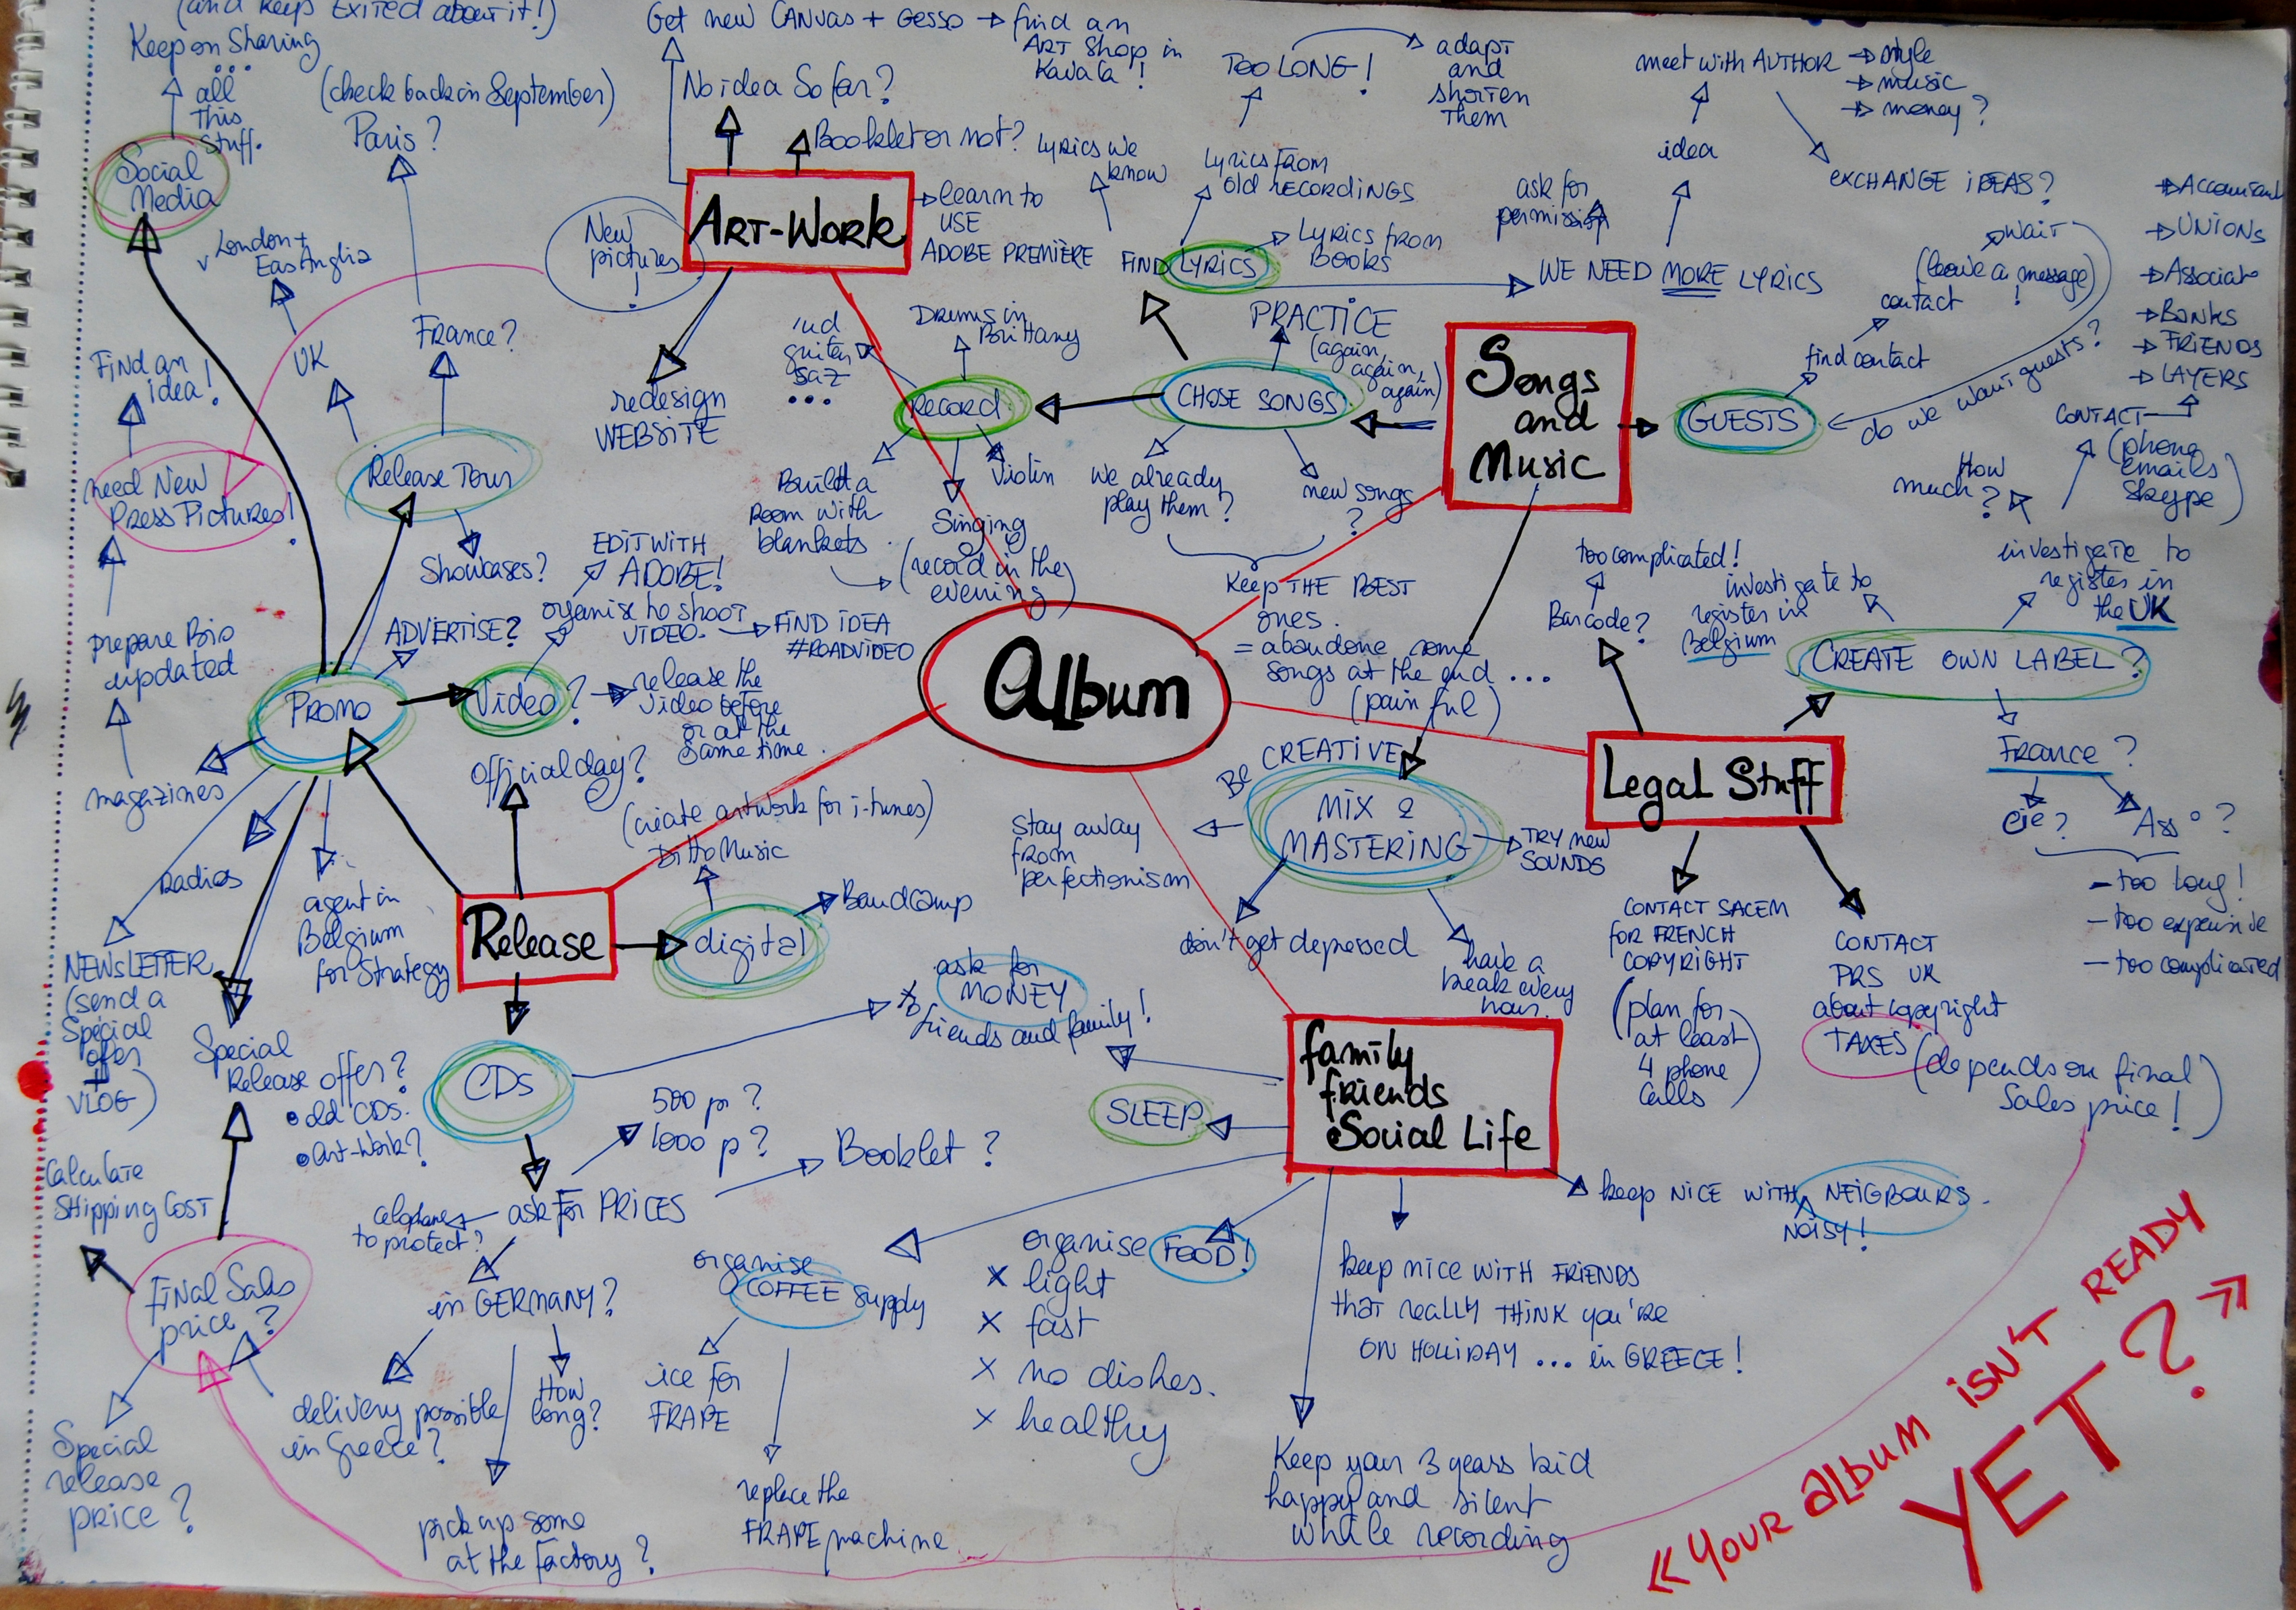 (and keep EXITED about it!)
Keep on Sharing
...
all
This
Stuff.
Social
Media
(check back in September)
Paris?
London +
East Anglia
UK
France?
Find an
idea!
need New
Press Pictures!
Release Tour
Showcases?
prepare Bio
updated
ADVERTISE?
PROMO
magazines
Radios
NEWSLETTER
(send a
Special
offer
+
VLOG)
agent in
Belgium
for Strategy
Video?
EDIT WITH
ADOBE!
organise to shoot
VIDEO.
FIND IDEA
#ROADVIDEO
release the
Video before
or at the
same time.
Get new CANVAS + Gesso → find an
ART Shop in
Kavala!
No idea So far?
Booklet or not?
New
pictures
!
ART-WORK
learn to
USE
ADOBE PREMIÈRE
redesign
WEBSITE
TOO LONG!
adapt
and
shorten
them
Lyrics we
know
Lyrics from
old RECORDINGS
FIND LYRICS
Lyrics from
Books
ask for
permission
WE NEED MORE LYRICS
idea
meet with AUTHOR
→ style
→ music
→ money?
EXCHANGE IDEAS?
PRACTICE
(again,
again,
again)
CHOSE SONGS
we already
play them?
new songs
?
Keep THE BEST
ones.
= abandone some
songs at the end ...
(painful)
Drums in
Brittany
guitar
saz
...
RECORD
Build a
room with
blankets
Singing
(record in the
evening)
Violin
Songs
and
Music
GUESTS
find contact
contact
(leave a message)
!
wait
do we want guests?
Album
BE CREATIVE
MIX &
MASTERING
Stay away
from
perfectionism
TRY new
SOUNDS
don't get depressed
have a
break every
hour.
too complicated!
Barcode?
investigate to
register in
Belgium
How
much?
investigate to
register in
the UK
CONTACT
(phone
emails
Skype)
→ UNIONS
→ Banks
→ FRIENDS
→ LAYERS
CREATE OWN LABEL?
France?
Cie?
Ass°?
- too long!
- too expensive
- too complicated
Legal Stuff
CONTACT SACEM
FOR FRENCH
COPYRIGHT
(plan for
at least
4 phone
calls)
CONTACT
PRS UK
about copyright
TAXES (depends on final
Sales price!)
Official day?
(create artwork for i-tunes)
Ditto Music
Bandcamp
digital
Release
CDs
ask for
MONEY
to friends and family!
500 p?
1000 p?
Booklet?
ask for PRICES
to protect?
in GERMANY?
delivery possible
in Greece?
How
long?
pick up some
at the factory?
Special
Release offer?
• old CDs.
• Art-Work?
Calculate
Shipping Cost
Final Sales
price?
Special
release
price?
family
friends
Social Life
SLEEP
organise
COFFEE supply
ice for
FRAPE
replace the
FRAPE machine
organise FOOD!
x light
x fast
x no dishes.
x healthy
keep NICE WITH NEIGBOURS.
NOISY!
keep nice WITH FRIENDS
that really THINK you're
ON HOLLIDAY ... in GREECE!
Keep your 3 years kid
happy and silent
while recording
« YOUR ALBUM ISN'T READY
YET? »